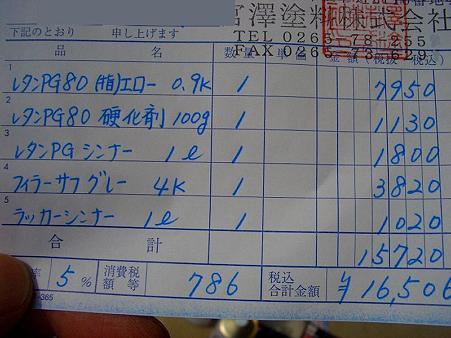 宮澤塗料株式会社
下記のとおり 申し上げます
TEL 0265-78-
FAX 0265-73-
品 名 数量 単価 金額(税抜・税込)
1 レタンPG80 (指)エロー 0.9K 1 7950
2 レタンPG80 硬化剤 100g 1 1130
3 レタンPG シンナー 1ℓ 1 1800
4 フィラーサフ グレー 4K 1 3820
5 ラッカーシンナー 1ℓ 1 1020
合 計 15720
率 5% 消費税額等 786 税込合計金額 ¥16,506
-365